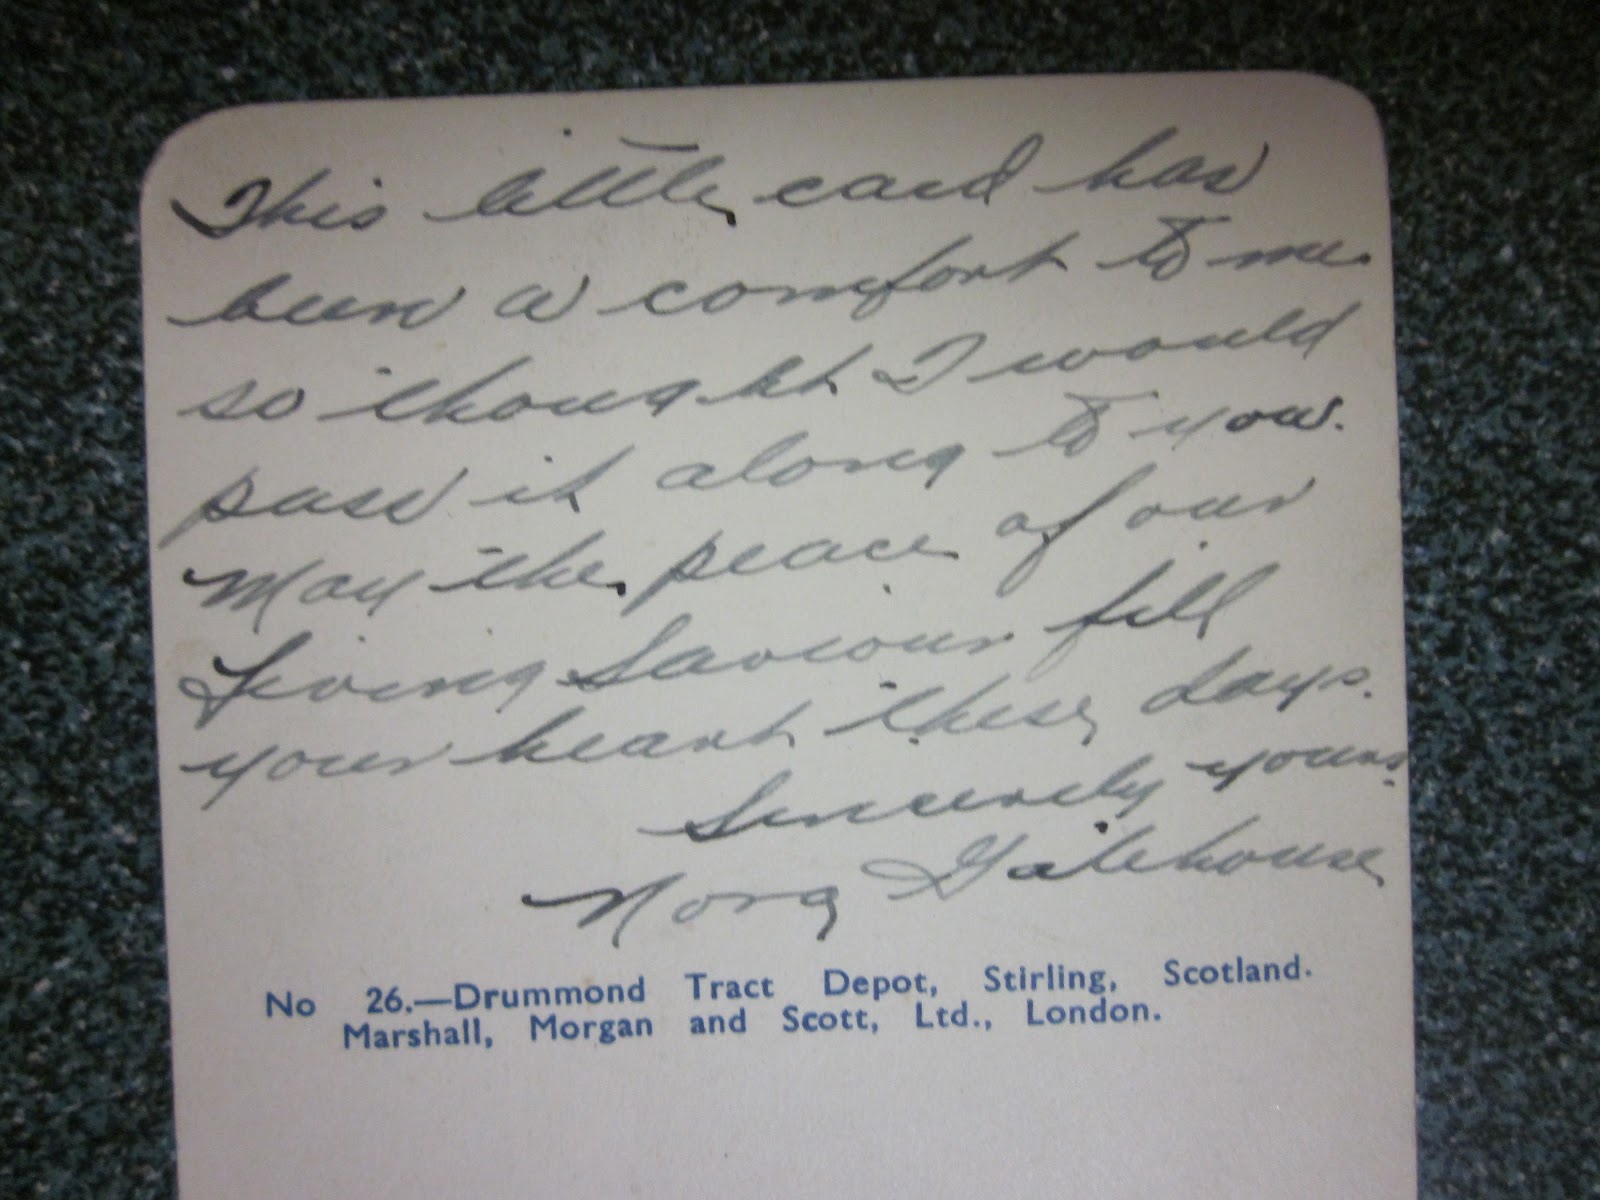 This little card has
been a comfort to me
so thought I would
pass it along to you.
May the peace of our
Living Saviour fill
your heart these days.
Sincerely yours,
Nora Gatehouse
No 26.—Drummond Tract Depot, Stirling, Scotland.
Marshall, Morgan and Scott, Ltd., London.